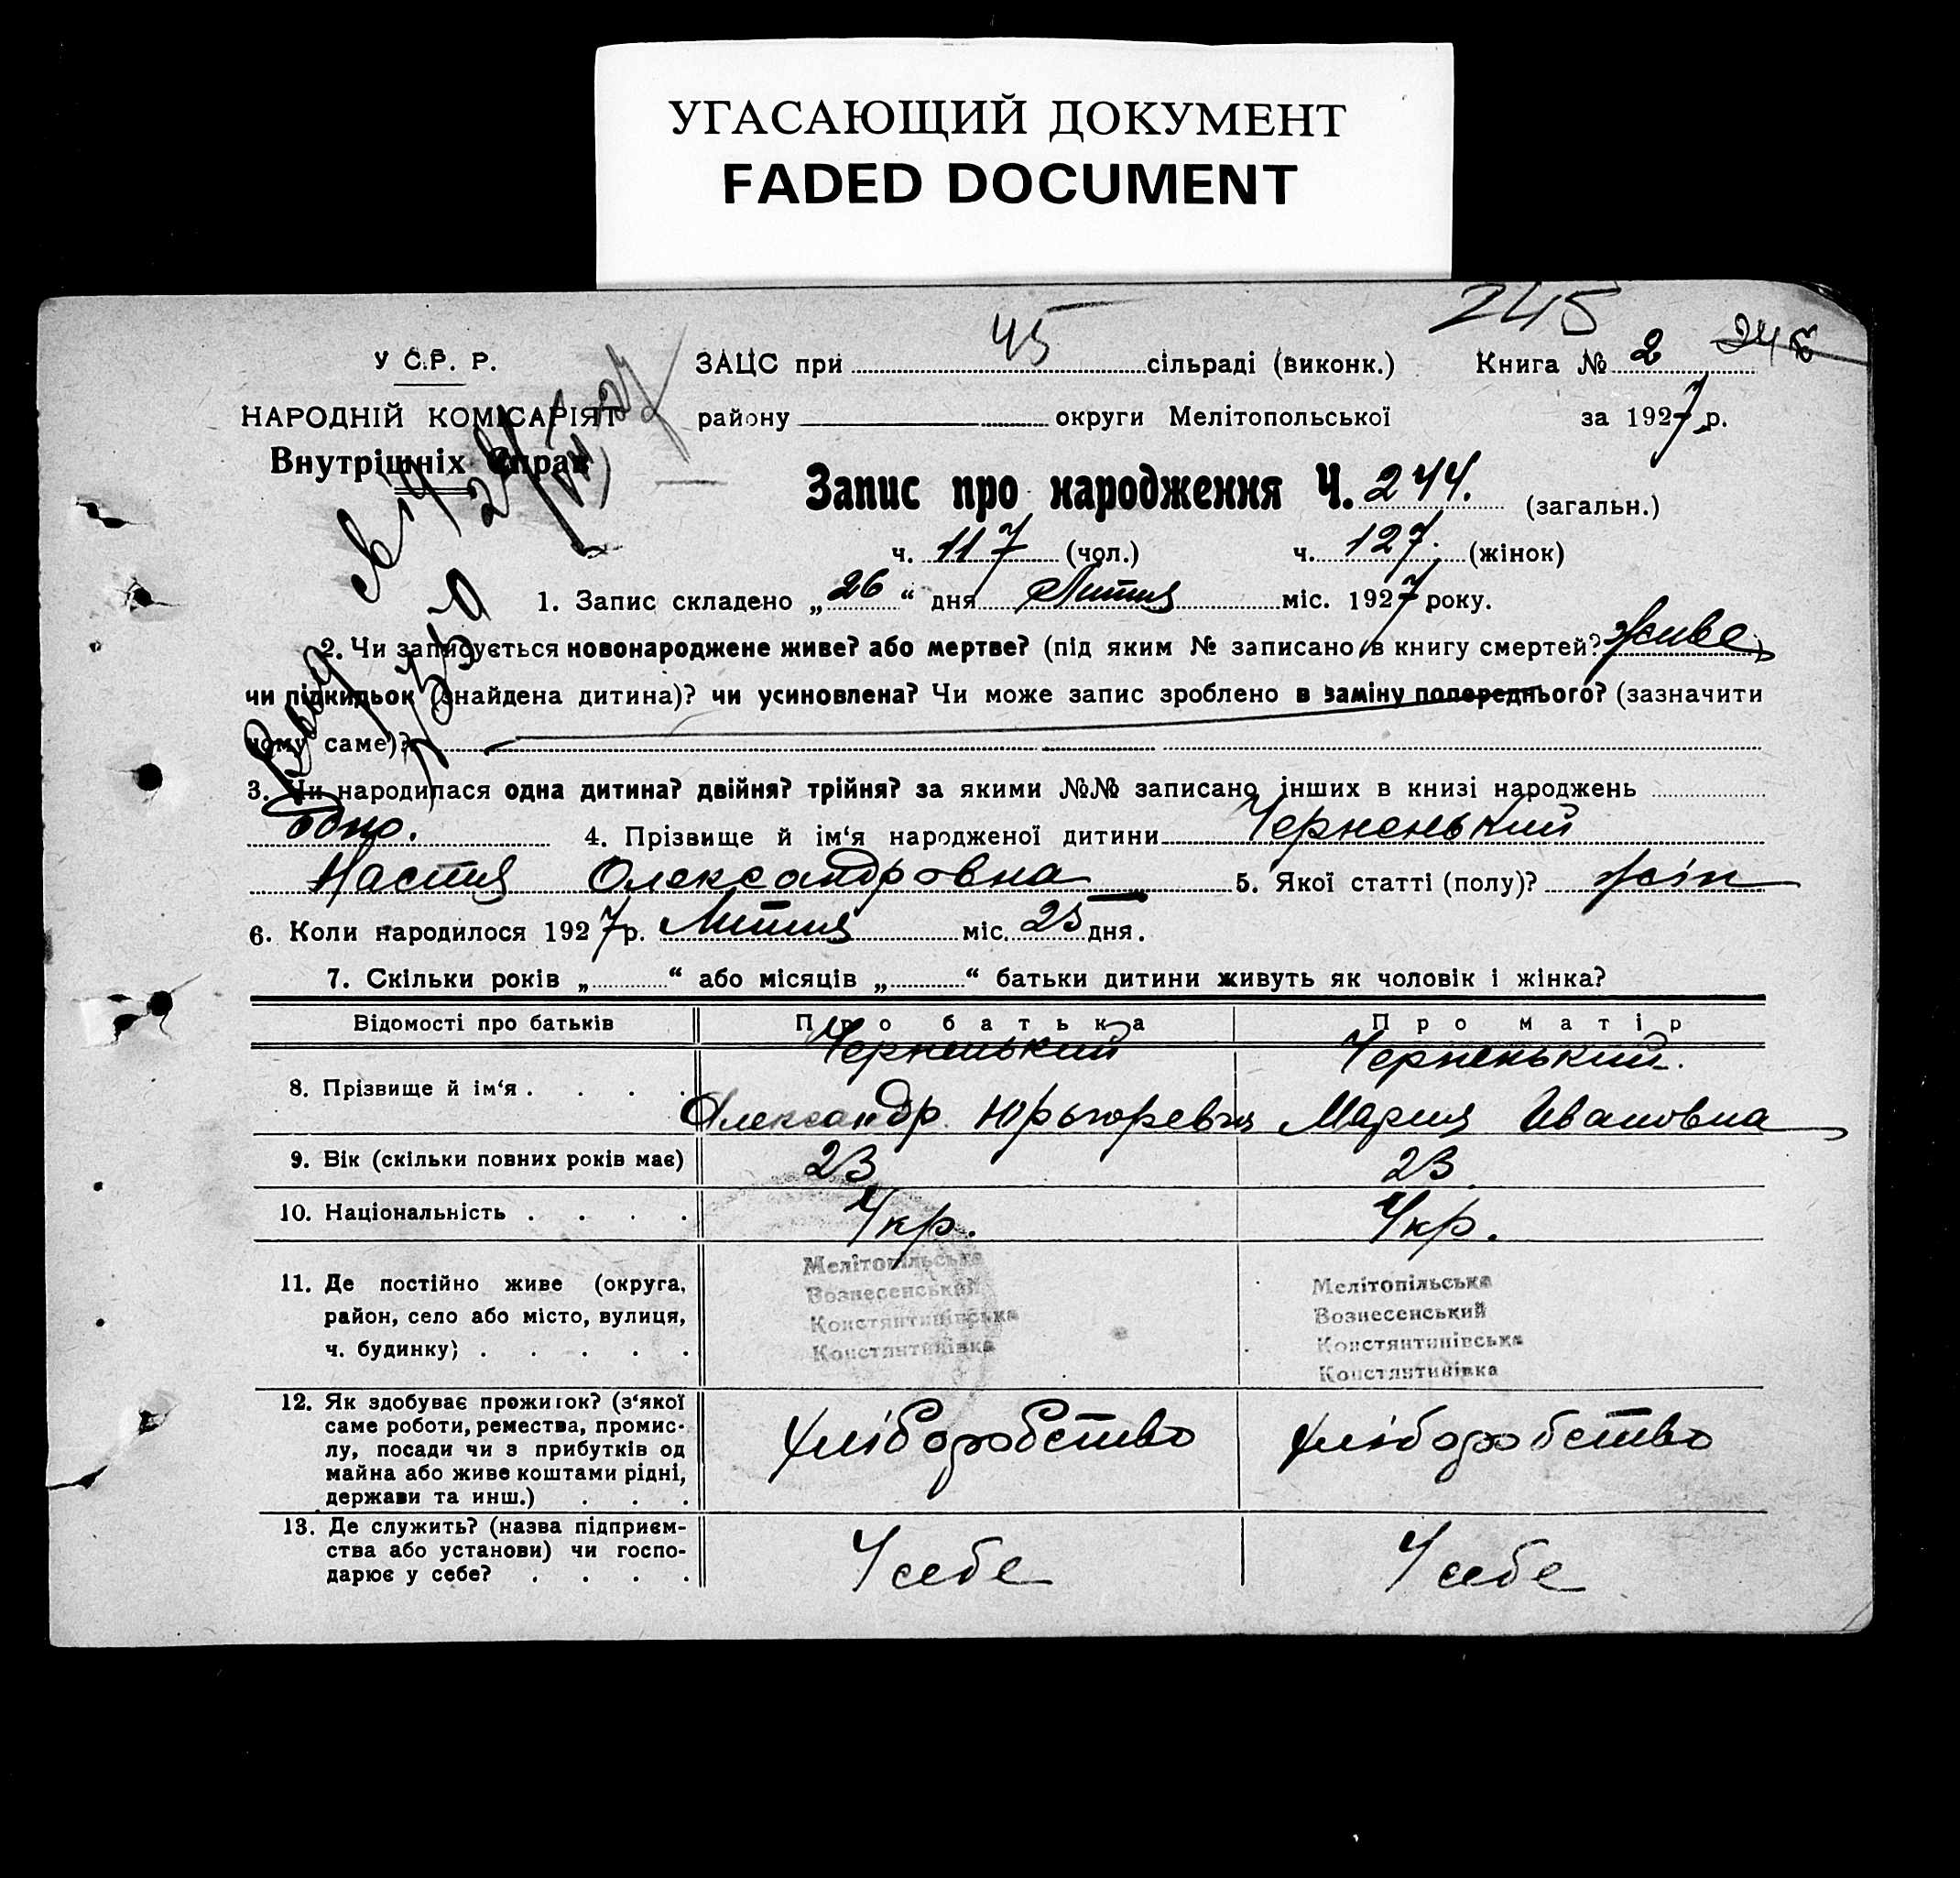 УГАСАЮЩИЙ ДОКУМЕНТ
FADED DOCUMENT
245
У С.Р. Р.
НАРОДНІЙ КОМІСАРІЯТ
Внутрішніх Справ
ЗАЦС при 45 сільраді (виконк.) Книга № 2
району округи Мелітопольської за 1927 р.
Запис про народження Ч. 244. (загальн.)
ч. 117 (чол.) ч. 127. (жінок)
1. Запис складено „26“ дня Липця міс. 1927 року.
2. Чи записується новонароджене живе? або мертве? (під яким № записано в книгу смертей? живе)
чи підкидьок (знайдена дитина)? чи усиновлена? Чи може запис зроблено в заміну попереднього? (зазначити
чому саме)?
3. Чи народилася одна дитина? двійня? трійня? за якими №№ записано інших в книзі народжень
одно. 4. Прізвище й ім‘я народженої дитини Черненький
Настя Олександровна 5. Якої статті (полу)? жін
6. Коли народилося 1927 р. Липця міс. 25 дня.
7. Скільки років „ “ або місяців „ “ батьки дитини живуть як чоловік і жінка?
Відомості про батьків Про батька Про матір
8. Прізвище й ім‘я . . . . Черненький Черненький.
Олександр Юрьгоревич Мария Ивановна
9. Вік (скільки повних років має) 23 23.
10. Національність . . . . Укр. Укр.
11. Де постійно живе (округа,
район, село або місто, вулиця,
ч. будинку) . . . . .
Мелітопільська
Вознесенський
Констянтинівська
Констянтинівка
Мелітопільська
Вознесенський
Констянтинівська
Констянтинівка
12. Як здобуває прожиток? (з‘якої
саме роботи, ремества, промис-
лу, посади чи з прибутків од
майна або живе коштами рідні,
держави та инш.) . . .
хліборобство хліборобство
13. Де служить? (назва підприєм-
ства або установи) чи госпо-
дарює у себе? . . . .
У себе У себе